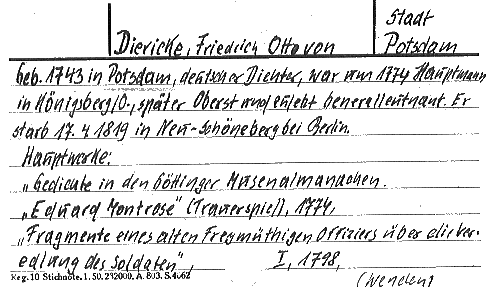 Stadt
Diericke, Friedrich Otto von Potsdam
geb. 1743 in Potsdam, deutscher Dichter, war um 1774 Hauptmann
in Königsberg/O., später Oberst und zuletzt Generalleutnant. Er
starb 17.4 1819 in Neu-Schöneberg bei Berlin.
Hauptwerke:
„Gedichte in den Göttinger Musenalmanachen.
„Eduard Montrose" (Trauerspiel), 1774,
„Fragmente eines alten Freymüthigen Offiziers über die Ver-
edlung des Soldaten", I, 1798,
Reg. 10 Stichnote. 1. 50. 232000. A. 803. S. 4.62
(wenden)